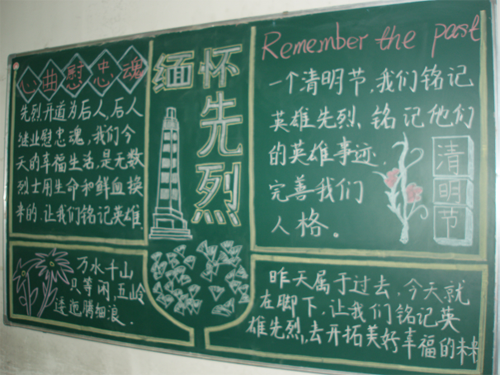 心曲慰忠魂
先烈开道为后人,后人
继业慰忠魂,我们今
天的幸福生活,是无数
烈士用生命和鲜血换
来的,让我们铭记英雄.
缅怀
先烈
Remember the past
一个清明节,我们铭记
英雄先烈、铭记他们
的英雄事迹.
完善我们
人格。
清明节
万水千山
只等闲,五岭
逶迤腾细浪.
昨天属于过去,今天就
在脚下,让我们铭记英
雄先烈,去开拓美好幸福的未来